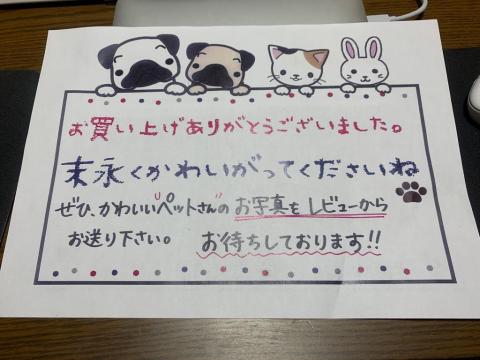 お買い上げありがとうございました。
末永くかわいがってくださいね
ぜひ、かわいい"ペットさん"のお写真をレビューから
お送り下さい。 お待ちしております!!